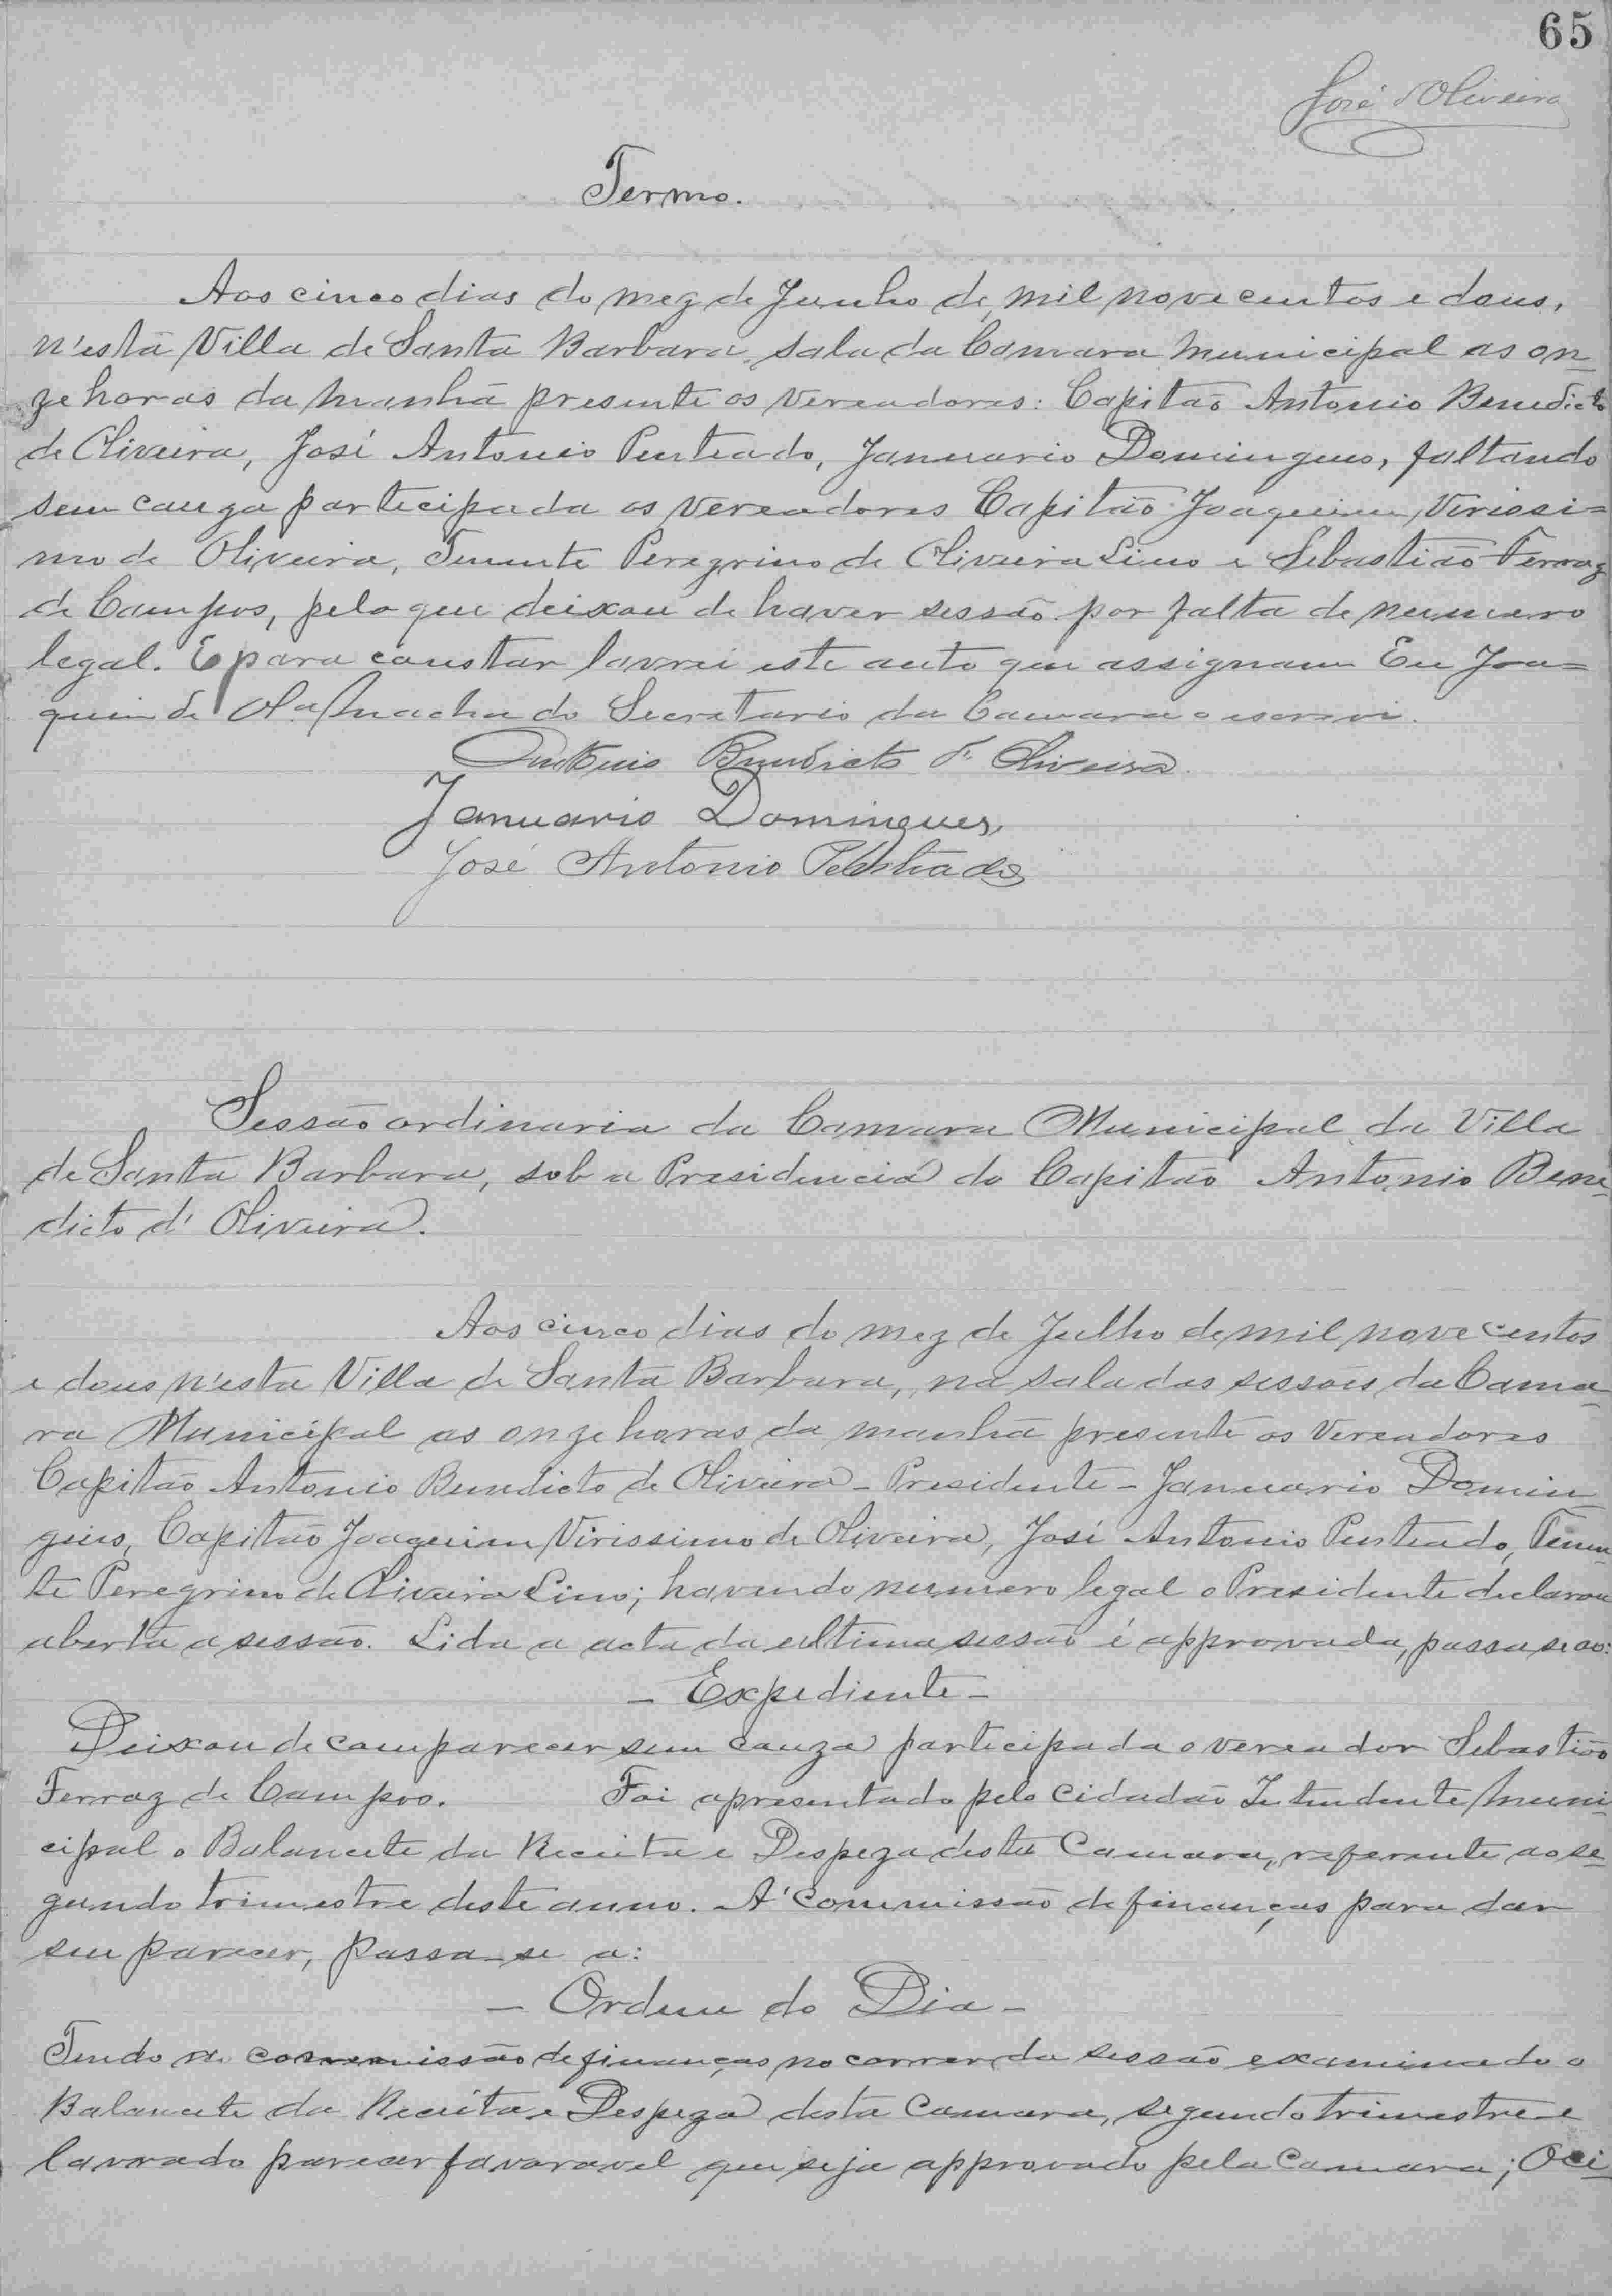 65
José d'Oliveira
Termo.
Aos cinco dias do mez de Junho de mil nove centos e dous,
n'esta Villa de Santa Barbara, sala da Camara Municipal as on-
ze horas da manhã presente os Vereadores: Capitão Antonio Benedicto
de Oliveira, José Antonio Penteado, Januario Domingues, faltando
sem cauza participada os Vereadores Capitão Joaquim Virissi=
mo de Oliveira, Tenente Peregrino de Oliveira Lino e Sebastião Ferraz
de Campos, pelo que deixou de haver sessão por falta de numero
legal. E para constar lavrei este auto que assignam Eu Joa=
quim de Olª Machado Secretario da Camara o escrevi.
Antonio Benedicto d' Oliveira
Januario Domingues,
José Antonio Penteado
Sessão ordinaria da Camara Municipal da Villa
de Santa Barbara, sob a Presidencia do Capitão Antonio Bene-
dicto d' Oliveira.
Aos cinco dias do mez de Julho de mil nove centos
e dous n'esta Villa de Santa Barbara, na sala das sessões da Cama-
ra Municipal as onze horas da manhã presente os Vereadores
Capitão Antonio Benedicto de Oliveira - Presidente - Januario Domin-
gues, Capitão Joaquim Virissimo de Oliveira, José Antonio Penteado, Tenen-
te Peregrino de Oliveira Lino; havendo numero legal o Presidente declarou
aberta a sessão. Lida a acta da ultima sessão é approvada, passa se ao:
- Expediente -
Deixou de comparecer sem cauza participada o vereador Sebastião
Ferraz de Campos. Foi apresentado pelo Cidadão Intendente Muni-
cipal o Balancete da Receita e Despeza desta Camara, referente ao se-
gundo trimestre deste anno. A' Commissão de finanças para dar
seu parecer, passa-se a:
- Ordem do Dia -
Tendo a commissão de finanças no correr da sessão examinado o
Balancete da Receita e Despeza desta Camara, segundo trimestre e
lavrado parecer favoravel que seja approvado pela Camara; O ci-